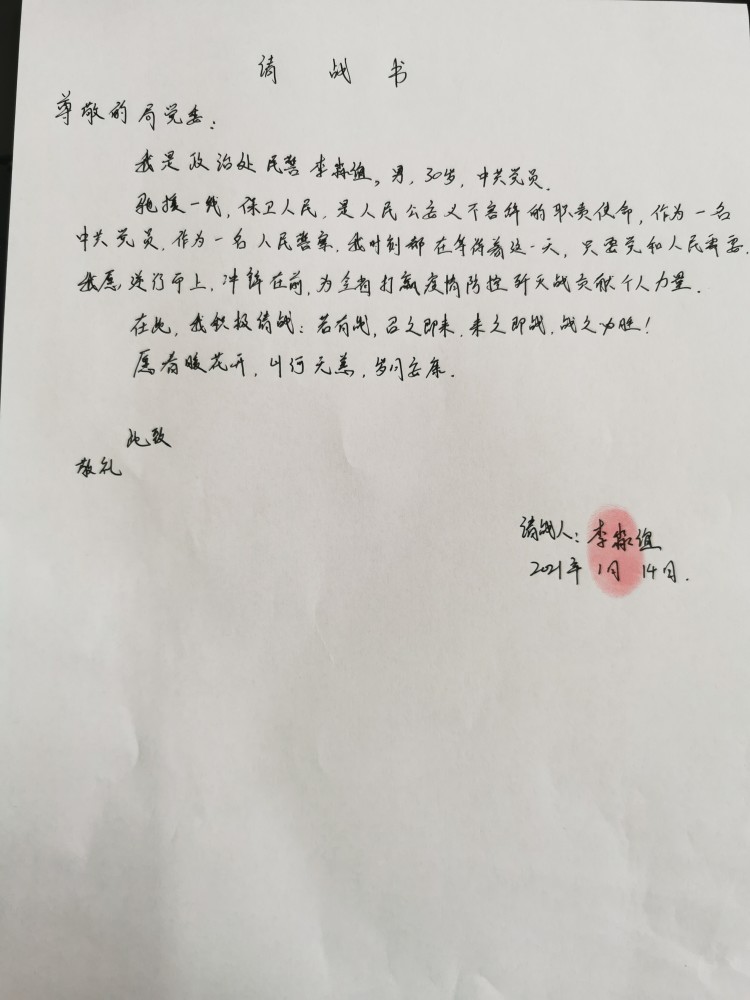 请战书
尊敬的局党委：
我是政治处民警李淼谊，男，30岁，中共党员.
驰援一线，保卫人民，是人民公安义不容辞的职责使命，作为一名
中共党员，作为一名人民警察，我时刻都在等待着这一天，只要党和人民需要，
我愿逆行而上，冲锋在前，为全省打赢疫情防控歼灭战贡献个人力量.
在此，我积极请战：若有战，召之即来，来之即战，战之必胜！
愿春暖花开，山河无恙，岁月安康.
此致
敬礼
请战人：李淼谊
2021年1月14日.